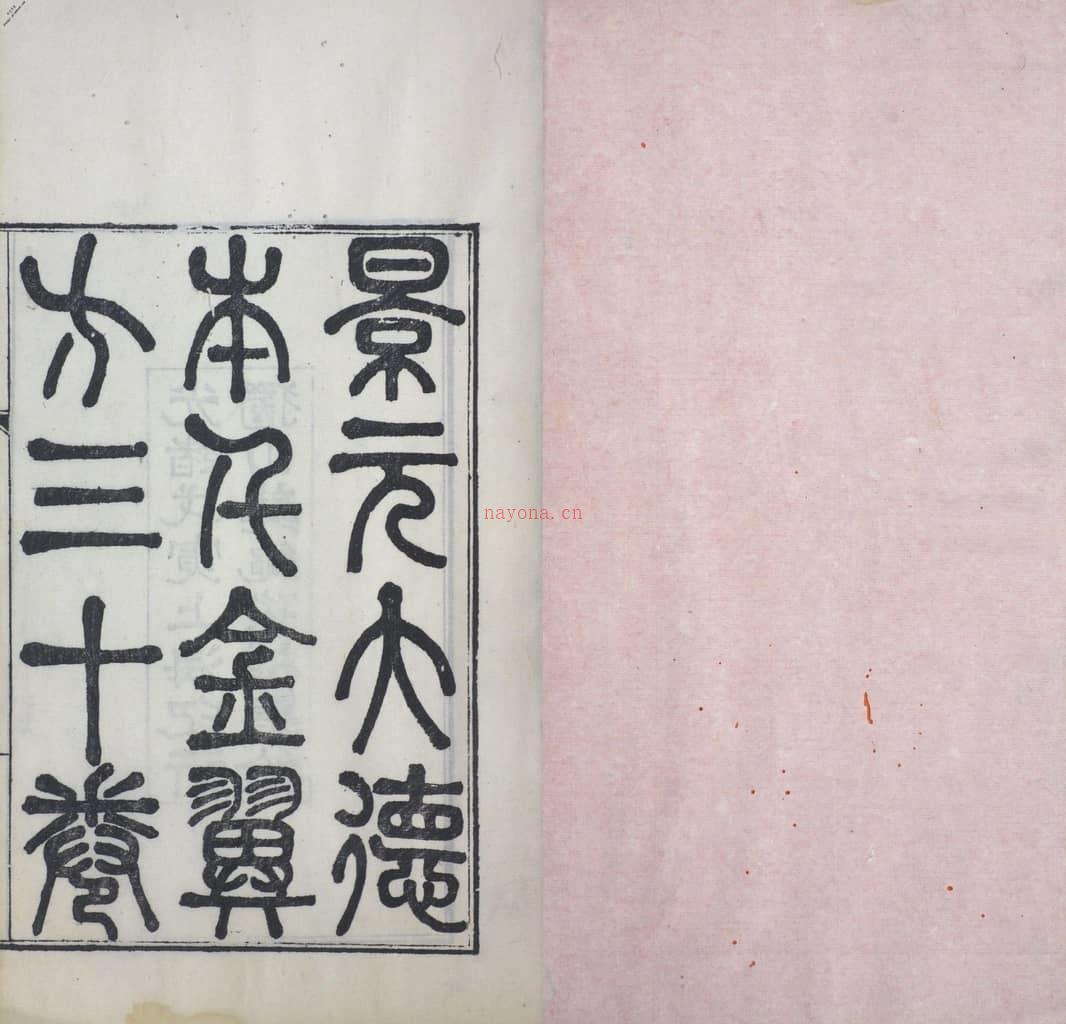 景元大德
本千金翼
方三十卷
nayona.cn